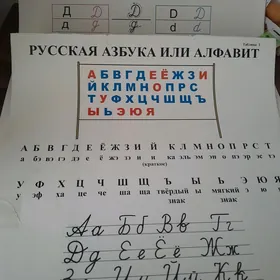 Д Д D D
д д d d
РУССКАЯ АЗБУКА ИЛИ АЛФАВИТ
АБВГДЕЁЖЗИ
ЙКЛМНОПРС
ТУФХЦЧШЩЪ
ЫЬЭЮЯ
А Б В Г Д Е Ё Ж З И Й К Л М Н О П Р С Т
а бэ вэ гэ дэ е ё жэ зэ и и ка эль эм эн о пэ эр эс тэ
(краткое)
У Ф Х Ц Ч Ш Щ Ъ Ы Ь Э Ю Я
у эф ха це че ша ща твёрдый ы мягкий э ю я
знак знак
Аа Бб Вв Гг
Дд Ее Ёё Жж
Ии Йй Кк